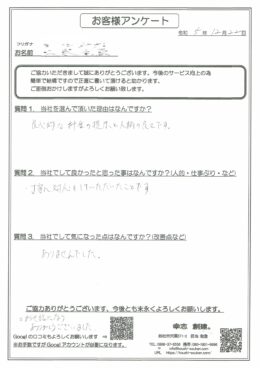 お客様アンケート
令和 5年 12月22日
フリガナ
お名前
ご協力いただきまして誠にありがとうございます。今後のサービス向上の為
簡単で結構ですので正直に書いて頂けると助かります。
ご面倒おかけしますがよろしくお願い致します。
質問1. 当社を選んで頂いた理由はなんですか?
良心的な料金の提示と人柄の良さです。
質問2. 当社でして良かったと思った事はなんですか?(人柄・仕事ぶり・など)
丁寧に対応していただいたことです
質問3. 当社でして気になった点はなんですか?(改善点など)
ありませんでした。
ご協力ありがとうございます。今後とも末永くよろしくお願いします。
お世話になり
ありがとうございました。
幸志 創建。
Googleの口コミもよろしくお願いします
※お手数ですがGoogleアカウントが必要になります。